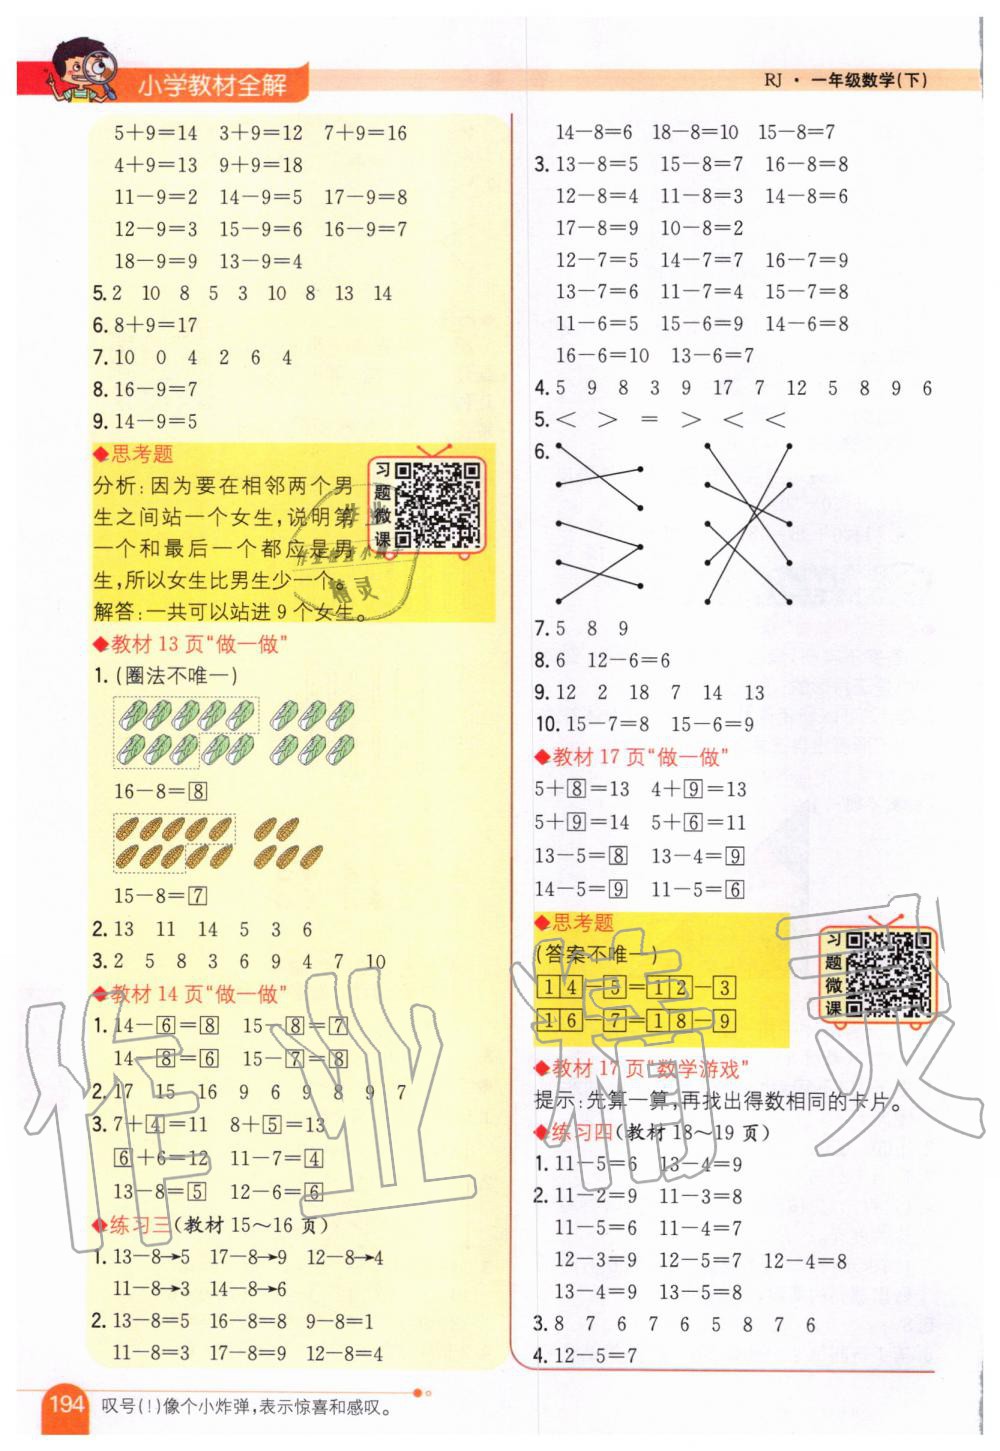 小学教材全解
RJ · 一年级数学(下)
5+9=14 3+9=12 7+9=16
4+9=13 9+9=18
11-9=2 14-9=5 17-9=8
12-9=3 15-9=6 16-9=7
18-9=9 13-9=4
5. 2 10 8 5 3 10 8 13 14
6. 8+9=17
7. 10 0 4 2 6 4
8. 16-9=7
9. 14-9=5
◆思考题
分析:因为要在相邻两个男
生之间站一个女生,说明第
一个和最后一个都应是男
生,所以女生比男生少一个。
解答:一共可以站进9个女生。
习题微课
◆教材13页“做一做”
1. (圈法不唯一)
16-8=8
15-8=7
2. 13 11 14 5 3 6
3. 2 5 8 3 6 9 4 7 10
◆教材14页“做一做”
1. 14-6=8 15-8=7
14-8=6 15-7=8
2. 17 15 16 9 6 9 8 9 7
3. 7+4=11 8+5=13
6+6=12 11-7=4
13-8=5 12-6=6
◆练习三(教材15~16页)
1. 13-8→5 17-8→9 12-8→4
11-8→3 14-8→6
2. 13-8=5 16-8=8 9-8=1
11-8=3 17-8=9 12-8=4
14-8=6 18-8=10 15-8=7
3. 13-8=5 15-8=7 16-8=8
12-8=4 11-8=3 14-8=6
17-8=9 10-8=2
12-7=5 14-7=7 16-7=9
13-7=6 11-7=4 15-7=8
11-6=5 15-6=9 14-6=8
16-6=10 13-6=7
4. 5 9 8 3 9 17 7 12 5 8 9 6
5. < > = > < <
6.
7. 5 8 9
8. 6 12-6=6
9. 12 2 18 7 14 13
10. 15-7=8 15-6=9
◆教材17页“做一做”
5+8=13 4+9=13
5+9=14 5+6=11
13-5=8 13-4=9
14-5=9 11-5=6
◆思考题
(答案不唯一)
14-5=12-3
16-7=18-9
习题微课
◆教材17页“数学游戏”
提示:先算一算,再找出得数相同的卡片。
◆练习四(教材18~19页)
1. 11-5=6 13-4=9
2. 11-2=9 11-3=8
11-5=6 11-4=7
12-3=9 12-5=7 12-4=8
13-4=9 13-5=8
3. 8 7 6 7 6 5 8 7 6
4. 12-5=7
194 叹号(!)像个小炸弹,表示惊喜和感叹。
作业精灵